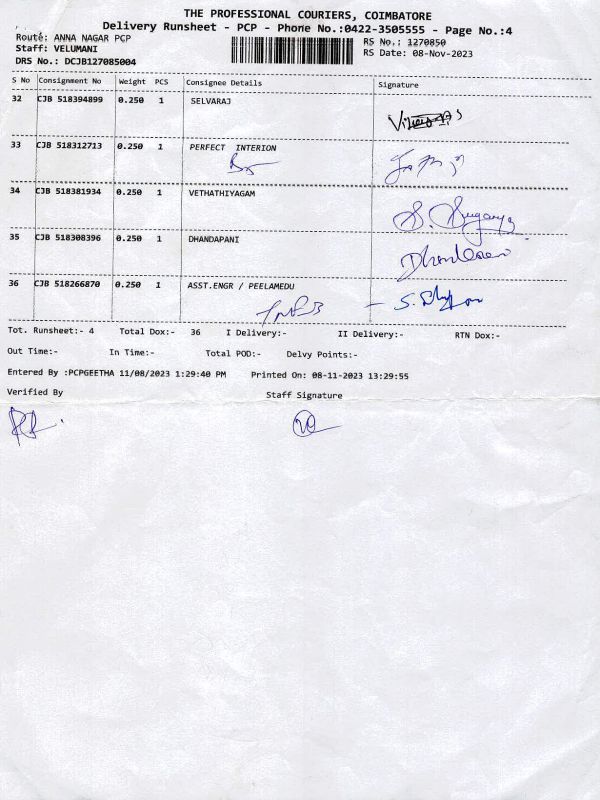 THE PROFESSIONAL COURIERS, COIMBATORE
Delivery Runsheet - PCP - Phone No.:0422-3505555 - Page No.:4
Route: ANNA NAGAR PCP RS No.: 1270850
Staff: VELUMANI RS Date: 08-Nov-2023
DRS No.: DCJB127085004
S No Consignment No Weight PCS Consignee Details Signature
32 CJB 518394899 0.250 1 SELVARAJ
33 CJB 518312713 0.250 1 PERFECT INTERION
34 CJB 518381934 0.250 1 VETHATHIYAGAM
35 CJB 518308396 0.250 1 DHANDAPANI
36 CJB 518266870 0.250 1 ASST.ENGR / PEELAMEDU
Tot. Runsheet:- 4 Total Dox:- 36 I Delivery:- II Delivery:- RTN Dox:-
Out Time:- In Time:- Total POD:- Delvy Points:-
Entered By :PCPGEETHA 11/08/2023 1:29:40 PM Printed On: 08-11-2023 13:29:55
Verified By Staff Signature